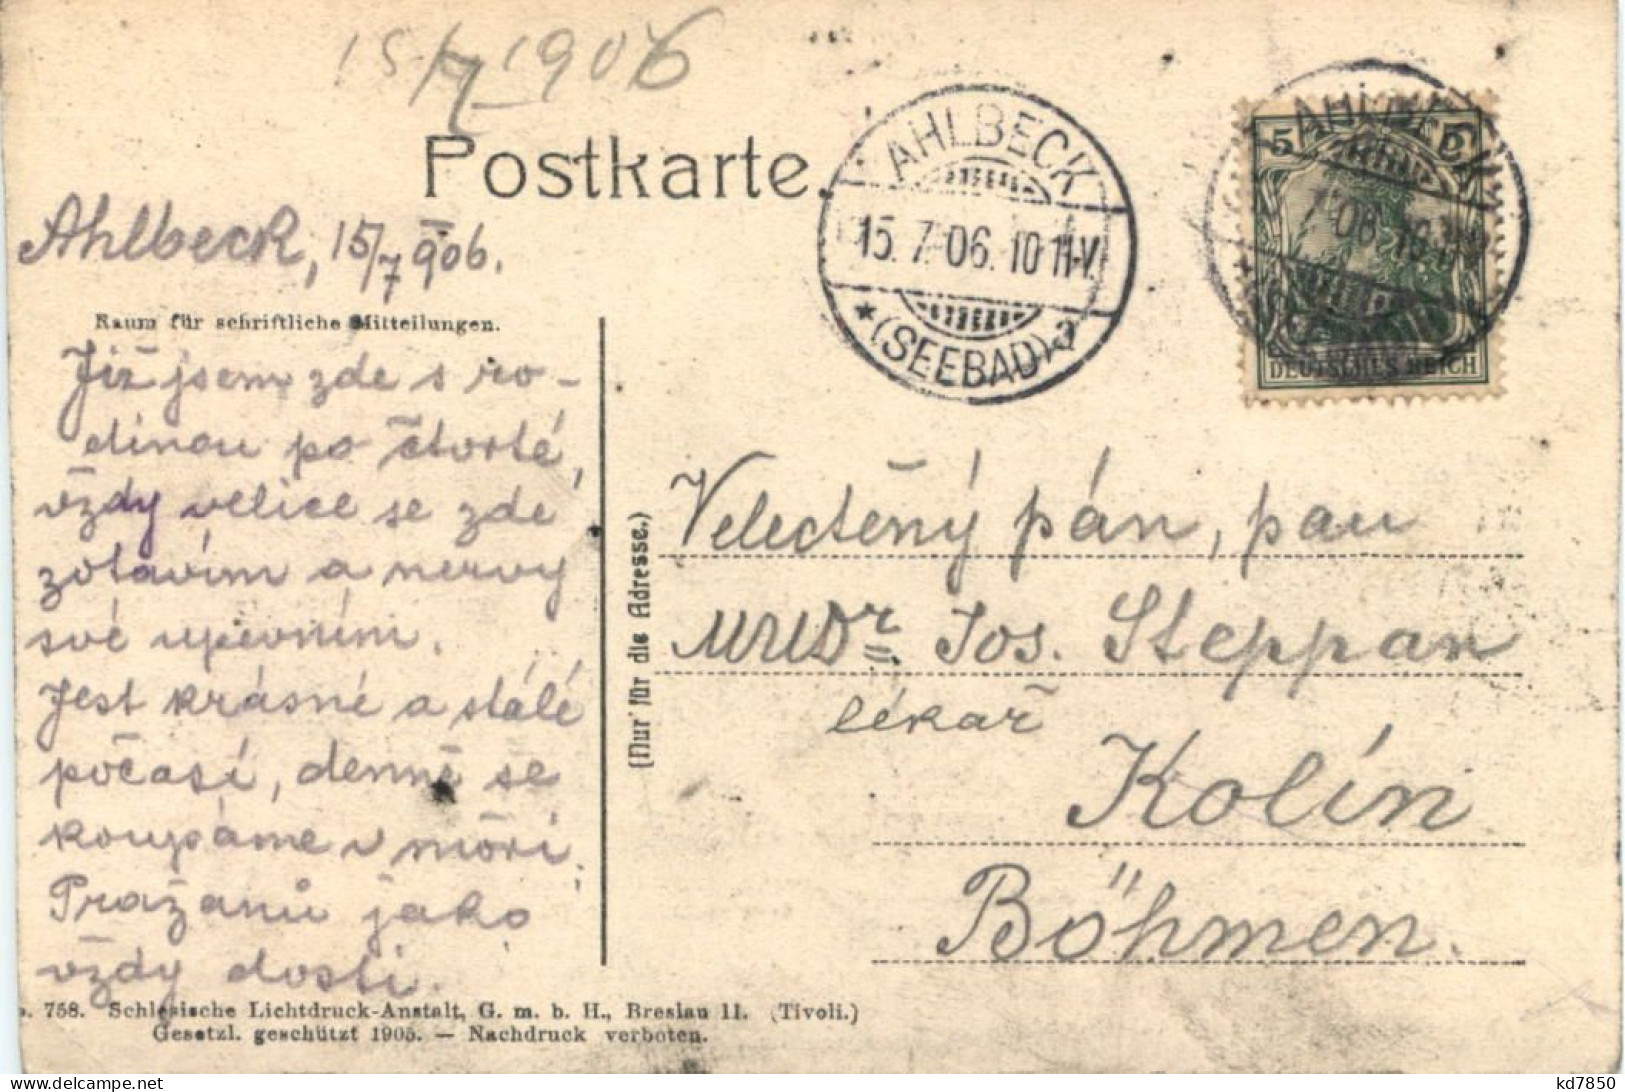 15/7 1906
Postkarte.
Ahlbeck, 15/7 906.
AHLBECK
15. 7. 06. 10 11-V.
* (SEEBAD)
AHLBECK
5 5
DEUTSCHES REICH
Raum für schriftliche Mitteilungen.
Již jsem zde s ro-
dinou po čtvrté,
vždy velice se zde
zotavím a nervy
své upevním.
Jest krásné a stálé
počasí, denně se
koupáme v moři,
Pražanů jako
vždy dosti.
(Nur für die Adresse.)
Velectěný pán, pan
MUDr Jos. Steppan
lékař
Kolín
Böhmen.
758. Schlesische Lichtdruck-Anstalt, G. m. b. H., Breslau II. (Tivoli.)
Gesetzl. geschützt 1905. — Nachdruck verboten.
kd7850